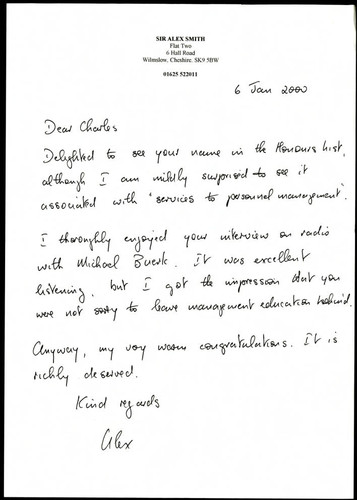 SIR ALEX SMITH
Flat Two
6 Hall Road
Wilmslow, Cheshire. SK9 5BW
01625 522011
6 Jan 2000
Dear Charles
Delighted to see your name in the Honours List,
although I am mildly surprised to see it
associated with 'services to personnel management'.
I thoroughly enjoyed your interview on radio
with Michael Buerk. It was excellent
listening, but I got the impression that you
were not sorry to leave management education behind.
Anyway, my very warm congratulations. It is
richly deserved.
Kind regards
Alex